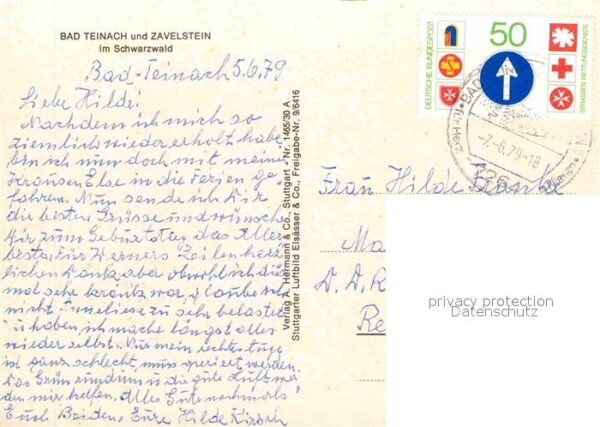 BAD TEINACH und ZAVELSTEIN
im Schwarzwald
Bad-Teinach 5.6.79
Liebe Hilde!
Nachdem ich mich so
ziemlich wieder erholt habe
bin ich nun doch mit meiner
Else in die Ferien ge
fahren. Nun sende ich Dir
die besten Grüsse und wünsche
Dir zum Geburtstag das Aller
beste. Für Werners Zeilen herz
lichen Dank, aber obwohl ich die
mal sehr war, glaube ich
nicht Anneliese zu sehr belastet
zu haben, ich mache längst alles
wieder selbst. Nur mein rechtes Auge
ist ganz schlecht, muss operiert werden.
Das Grün rundum u die gute Luft wer
den mir helfen. Alles Gute nochmals
Euch Beiden, Eure Hilde Kirsch
Verlag A. Hermann & Co., Stuttgart - Nr. 1465/30 A
Stuttgarter Luftbild Elsässer & Co., Freigabe-Nr. 9/6416
DEUTSCHE BUNDESPOST
50
STRASSEN RETTUNGSDIENSTE
-7.-6.79-18
Frau Hilde Franke
Ma
D. D. R
Re
privacy protection
Datenschutz